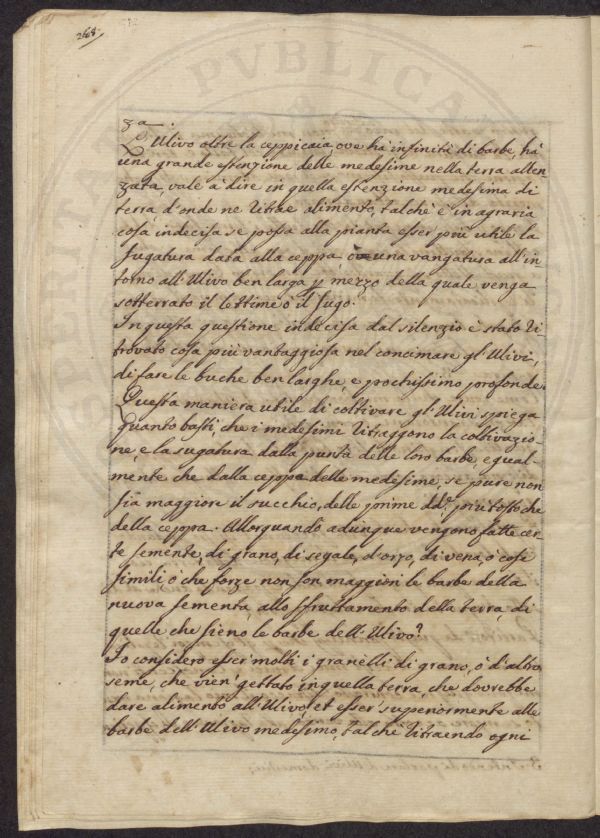 268.
PVBLICA
za.
L'Ulivo oltre la ceppicaia, ove há infiniti di barbe, há
una grande estenzione delle medesime nella terra allen-
zata, vale a dire in quella estenzione medesima di
terra, d'onde ne titrae alimento, talche è in agraria
cosa indecisa se possa alla pianta esser più utile la
sugatura data alla ceppa, ò una vangatura all'in-
torno all'Ulivo ben larga p mezzo della quale venga
sotterrato il lettime ò il sugo.
In questa questione indecisa dal silenzio è stato ri-
trovato cosa più vantaggiosa nel concimare gl'Ulivi,
di fare le buche ben larghe, e pochissimo profonde.
Questa maniera utile di coltivare gl'Ulivi spiega
quanto basti, che i medesimi ritraggono la coltivazio-
ne, e la sugatura dalla punta delle loro barbe, egual-
mente che dalla ceppa delle medesime, se pure non
sia maggiore il succhio, delle prime dd.e più tosto che
della ceppa. Allorquando adunque vengono fatte cer-
te semente, di grano, di segale, d'orzo, di vena, ò cose
simili ò che forze non son maggiori le barbe della
nuova sementa, allo sfruttamento della terra, di
quelle che sieno le barbe dell'Ulivo?
Io considero esser molti i granelli di grano, ò d'altro
seme, che vien gettato in quella terra, che dovrebbe
dare alimento all'Ulivo, et esser superiormente alle
barbe dell'Ulivo medesimo, talche ritraendo ogni